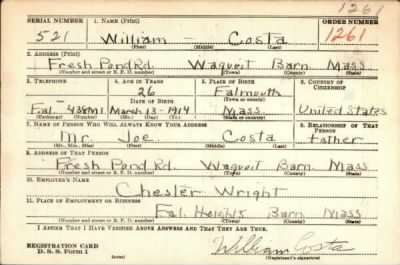 1261
SERIAL NUMBER 1. NAME (Print) ORDER NUMBER
521 William — Costa 1261
(First) (Middle) (Last)
2. ADDRESS (Print)
Fresh Pond Rd. Waquoit Barn. Mass.
(Number and street or R. F. D. number) (Town) (County) (State)
3. TELEPHONE 4. AGE IN YEARS 5. PLACE OF BIRTH 6. COUNTRY OF CITIZENSHIP
26 Falmouth
DATE OF BIRTH (Town or county)
Fal- March-13-1914 Mass. United States
(Exchange) (Mo.) (Day) (Yr.) (State or country)
7. NAME OF PERSON WHO WILL ALWAYS KNOW YOUR ADDRESS 8. RELATIONSHIP OF THAT PERSON
Mr. Joe Costa father
(Mr., Mrs., Miss) (First) (Middle) (Last)
9. ADDRESS OF THAT PERSON
Fresh Pond Rd Waquoit Barn Mass
(Number and street or R. F. D. number) (Town) (County) (State)
10. EMPLOYER'S NAME
Chester Wright
11. PLACE OF EMPLOYMENT OR BUSINESS
Fal. Heights Barn Mass
(Number and street or R. F. D. number) (Town) (County) (State)
I AFFIRM THAT I HAVE VERIFIED ABOVE ANSWERS AND THAT THEY ARE TRUE.
REGISTRATION CARD
D. S. S. Form 1 (over) William Costa
(Registrant's signature)